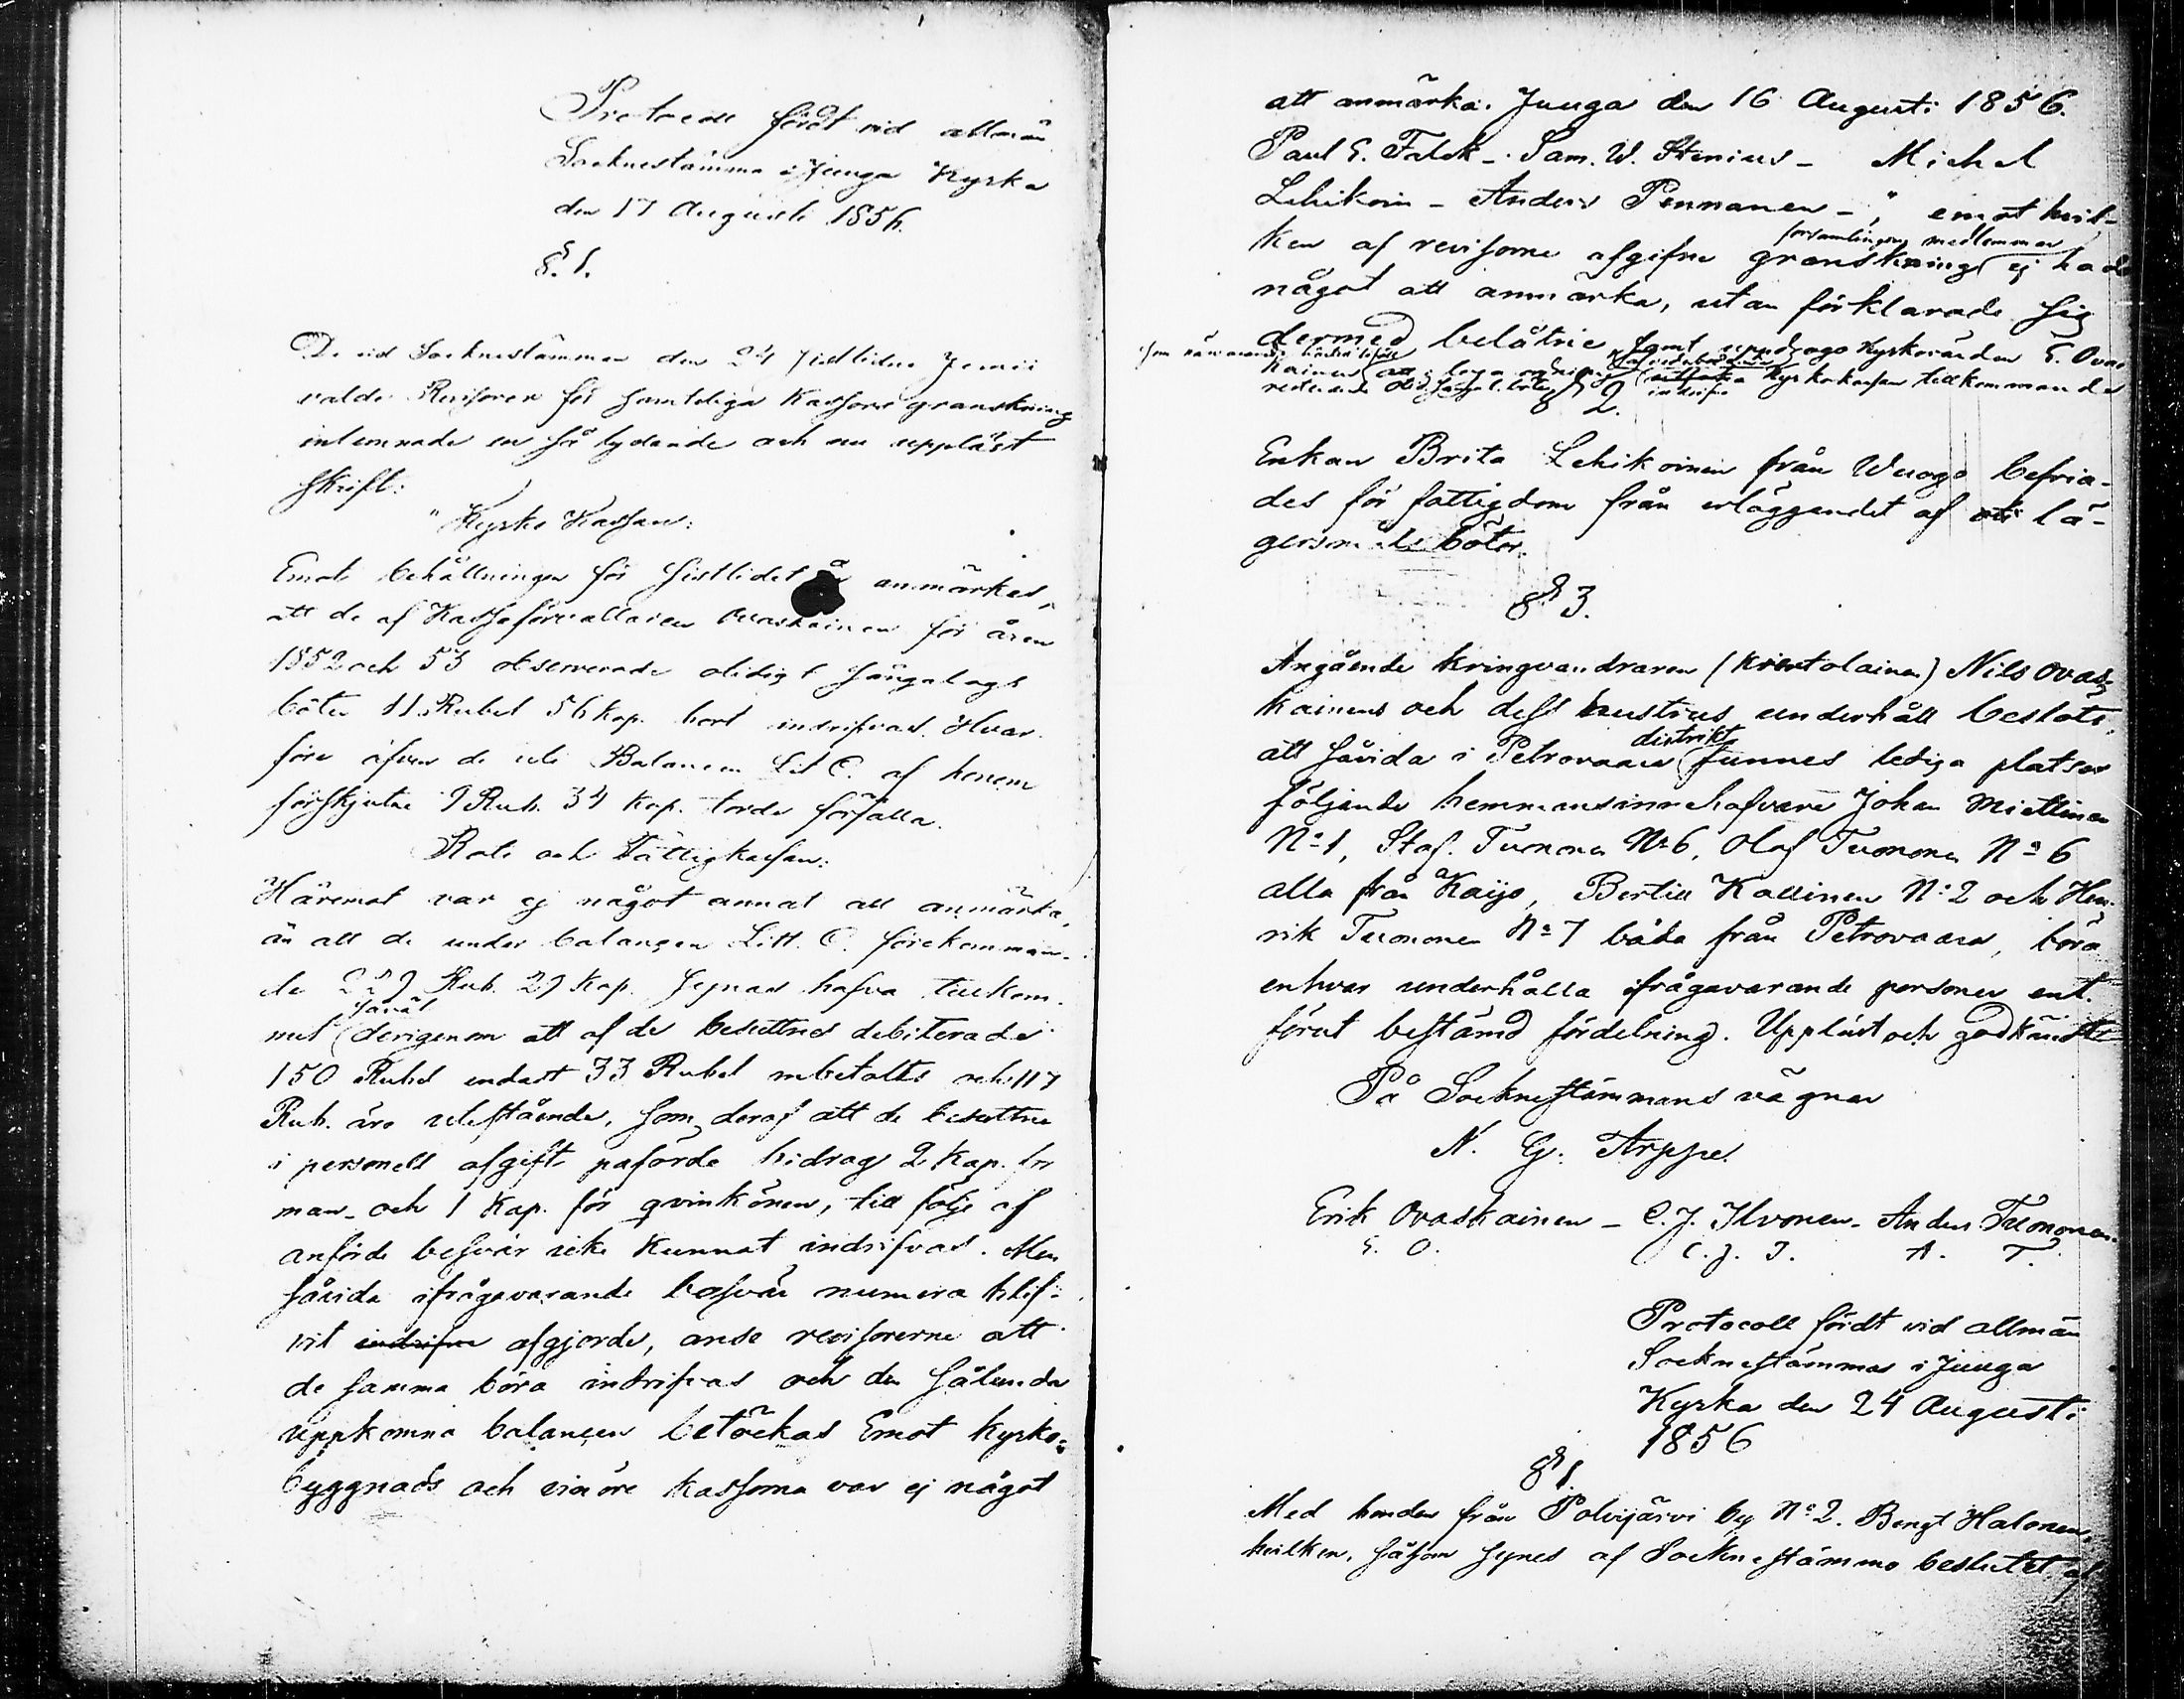 Protocoll fördt vid allmän
Socknestämma i Juuga Kyrka
den 17 Augusti 1856.
§. 1.
De vid Socknestämman den 24 sistlidne Junii
valde Revisorer för samteliga Kassors granskning
inlemnade en så lydande och nu uppläst
skrift:
"Kyrko Kassan:
Emot behållningen för sistlidet å anmärkes,
att de af Kassaförvaltaren Ovaskainen för åren
1852 och 53 observerade olidigt sängalags
böter 11 Rubel 56 kop. bort indrifvas. Hvar-
före äfven de uti Balancen Lit C. af honom
förskjutne 9 Rub. 34 Kop. torde förfalla.
Rote och Fattigkassan:
Häremot var ej något annat att anmärka,
än att de under balancen Litt. C. förekomman-
de 229 Rub. 29 Kop. synas hafva tillkom-
såväl
mit derigenom att af de besuttnes debiterade
150 Rubel endast 33 Rubel inbetalts och 117
Rub. äro utestående, som deraf att de besuttne
i personell afgift påförde bidrag 2 Kop. för
man- och 1 Kop. för qvinkönen, till följe af
anförde besvär icke kunnat indrifvas. Men
såvida ifrågavarande besvär numera blif-
vit indrifne afgjorde, anse revisorerne att
de samma böra indrifvas och den sålunda
uppkomna balancen betäckas Emot kyrko-
byggnads och vinöre kassorna var ej något
att anmärka. Juuga den 16 Augusti 1856.
Paul E. Falck - Sam. W. Stenius - Michel
Lehikoin - Anders Pennanen - " emot hvil-
församlingens medlemmar
ken af revisorne afgifne granskning ej hade
något att anmärka, utan förklarade sig
dermed belåtne samt uppdrogo Kyrkovärden E. Ovas-
kainen att laga Kyrkokassan tillkommande
§ 2.
Enkan Brita Lehikoinen från Wuogo befria-
des för fattigdom från erläggandet af lä-
gersmåls böter.
§ 3.
Angående kringvandraren (Krontolainen) Nils Ovas-
kainens och dess hustrus underhåll beslöts,
distrikt
att såvida i Petrovaara funnes lediga platser
följande hemmansinnehafvare Johan Miettinen
No 1, Staf. Tuononen No 6, Olof Tuononen No 6
alla från Kajo, Bertill Kallinen No 2 och Hen-
rik Tuononen No 7 båda från Petrovaara, böra
enhvar underhålla ifrågavarande personer ent.
förut bestämd fördelning. Uppläst och godkändt
På Socknestämmans vägnar
N. G. Arppe.
Erik Ovaskainen - C. J. Ilvonen - Anders Tuononen.
E. O. C. J. I. A. T.
Protocoll fördt vid allmän
Socknestämma i Juuga
Kyrka den 24 Augusti
1856
§ 1.
Med bonden från Polvijärvi by No 2. Bengt Halonen,
hvilken, såsom synes af Socknestämmo beslutet af